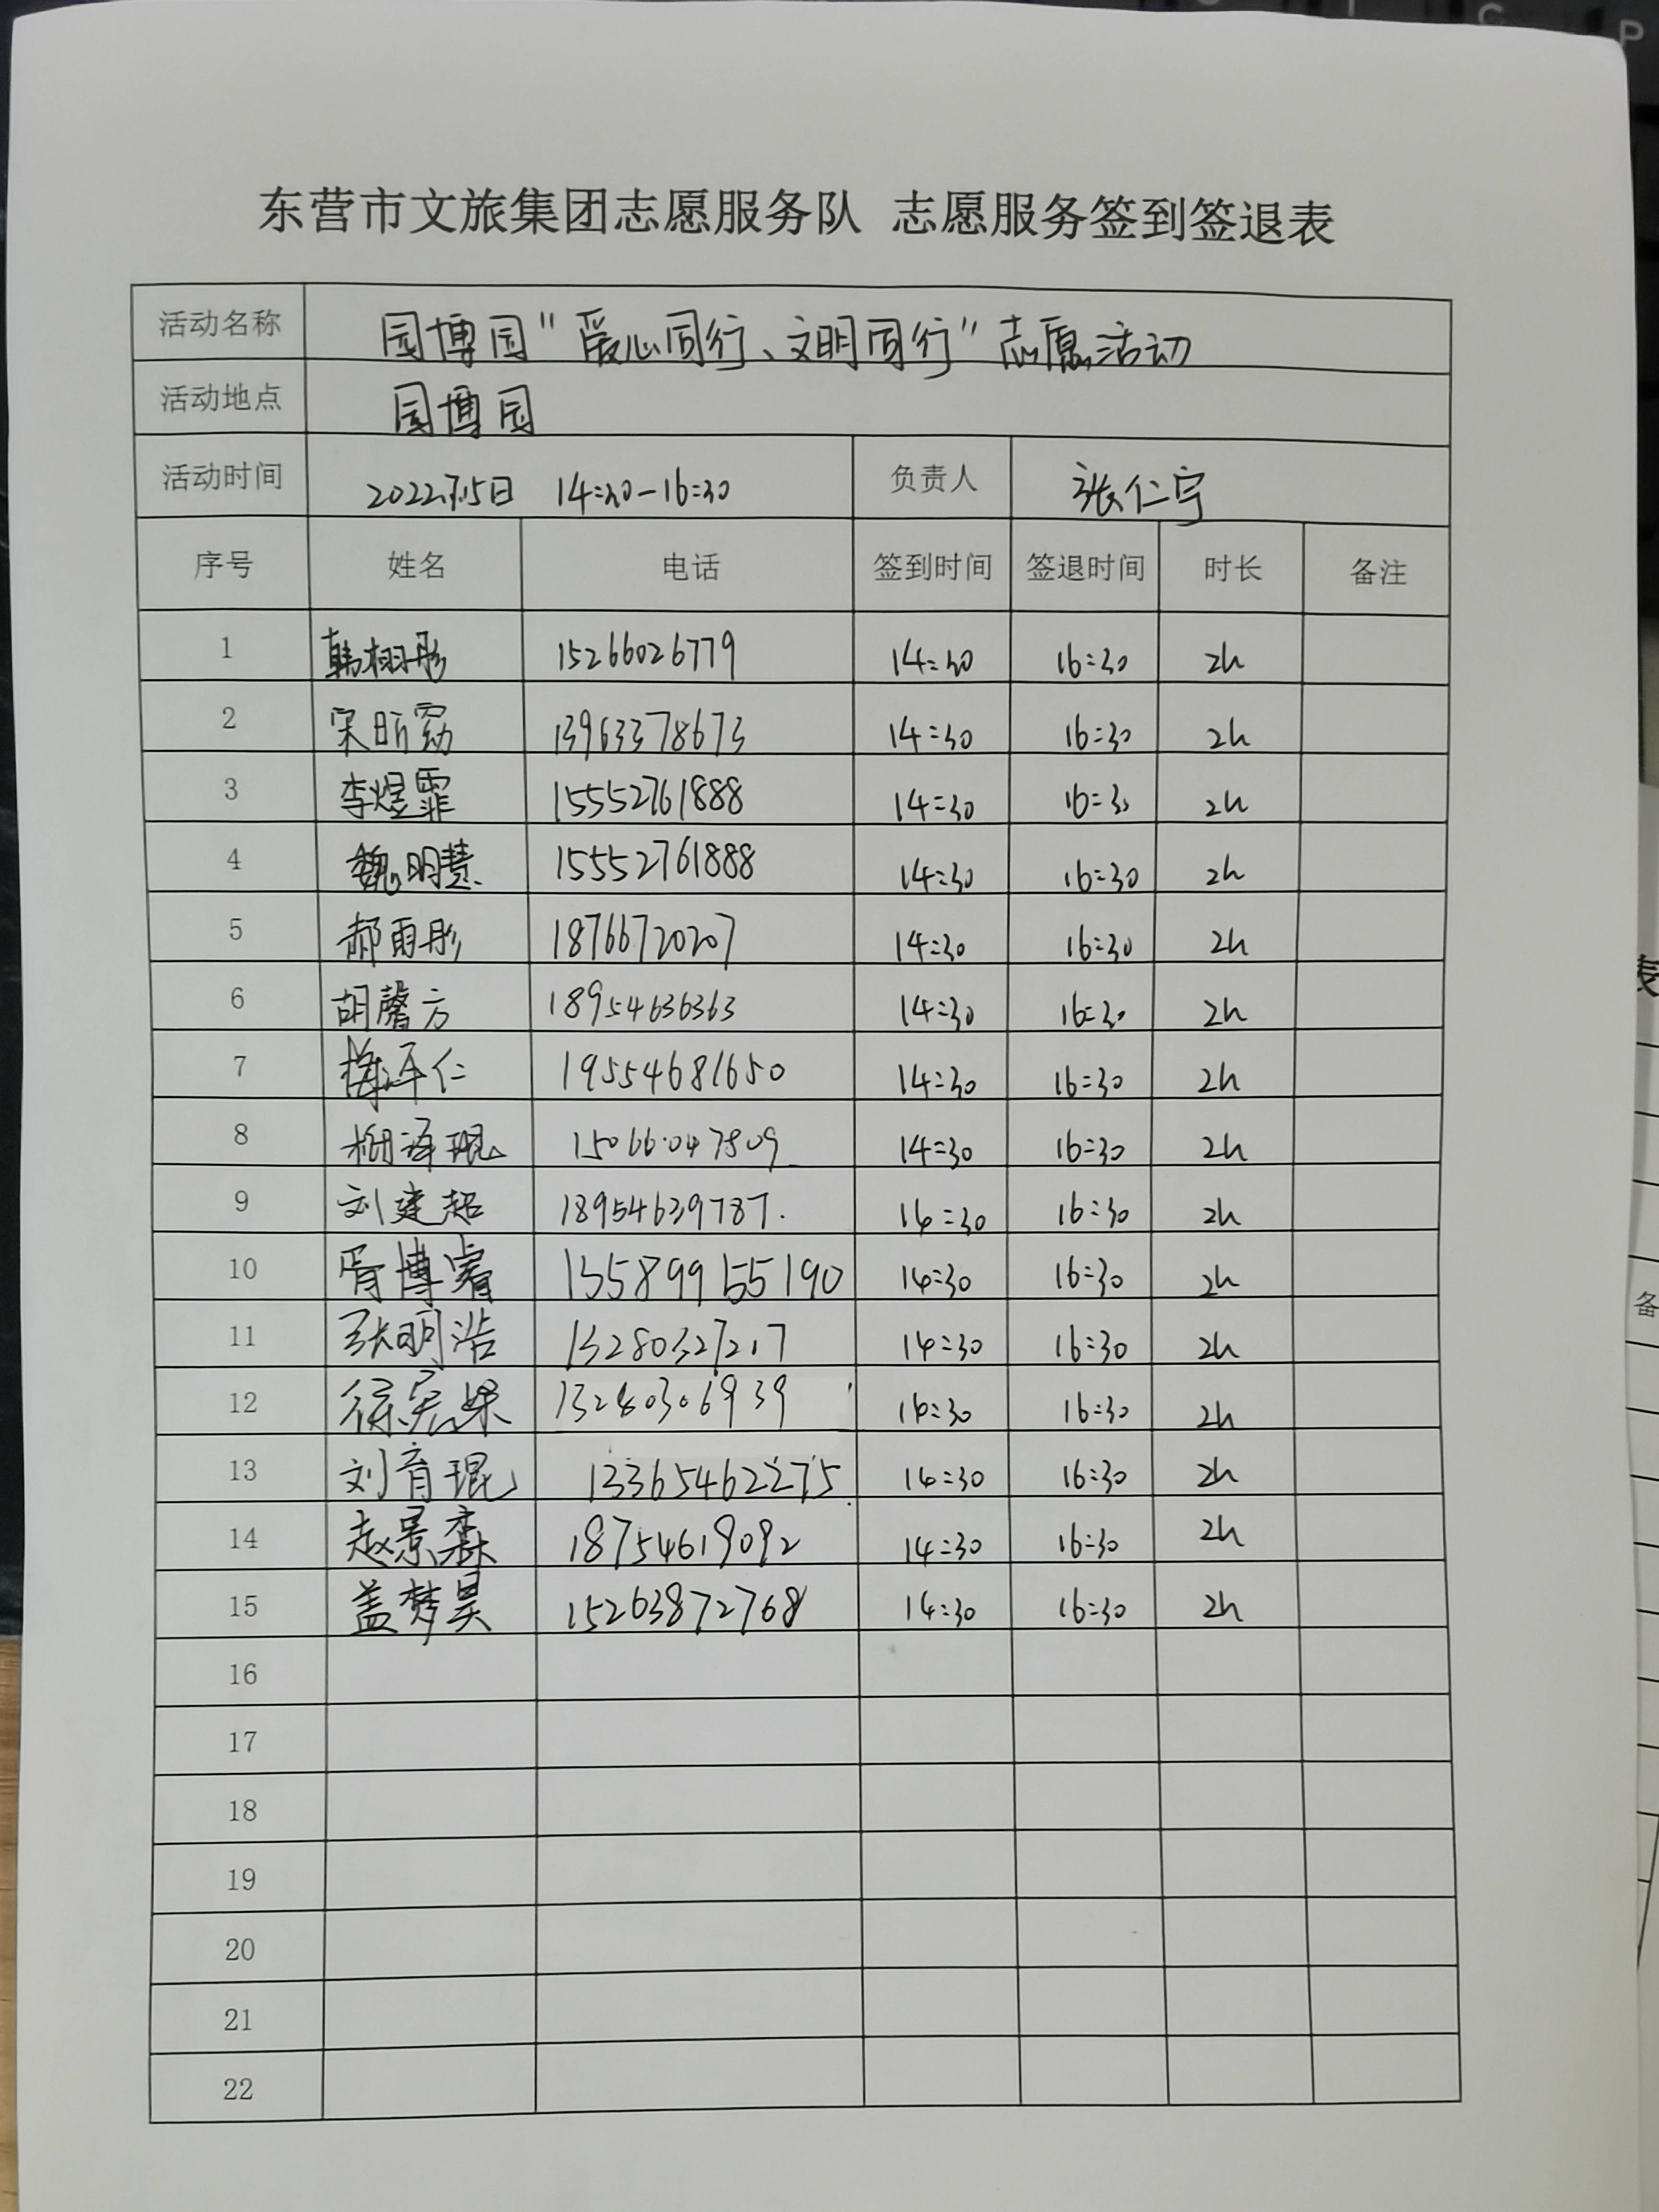 东营市文旅集团志愿服务队 志愿服务签到签退表
活动名称 园博园"爱心同行、文明同行"志愿活动
活动地点 园博园
活动时间 2022.7.15日 14:30-16:30 负责人 张仁宁
序号 姓名 电话 签到时间 签退时间 时长 备注
1 韩栩彤 15266026779 14:30 16:30 2h
2 宋昕勐 13963378673 14:30 16:30 2h
3 李煜霏 15552761888 14:30 16:30 2h
4 魏明慧 15552761888 14:30 16:30 2h
5 郝雨彤 18766720207 14:30 16:30 2h
6 胡馨方 18954636363 14:30 16:30 2h
7 仁 19554681650 14:30 16:30 2h
8 柳泽琨 15066047809 14:30 16:30 2h
9 刘建超 18954639787. 14:30 16:30 2h
10 胥博睿 135899155190 14:30 16:30 2h
11 张明浩 13280327217 14:30 16:30 2h
12 徐宪 13280306939 14:30 16:30 2h
13 刘育琨 13365462275 14:30 16:30 2h
14 赵景森 18754619092 14:30 16:30 2h
15 盖梦昊 15263872768 14:30 16:30 2h
16
17
18
19
20
21
22
表
备
C
P